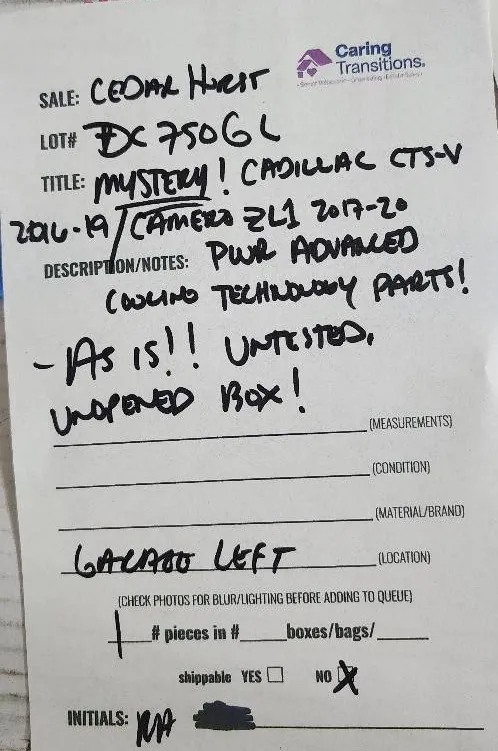 Caring
Transitions®
SALE: CEDAR HURST
LOT# DC750GL
TITLE: MYSTERY! CADILLAC CTS-V
2016-19/CAMERO ZL1 2017-20
DESCRIPTION/NOTES: PWR ADVANCED
COOLING TECHNOLOGY PARTS!
- AS IS!! UNTESTED,
UNOPENED BOX!
(MEASUREMENTS)
(CONDITION)
(MATERIAL/BRAND)
GARAGE LEFT (LOCATION)
(CHECK PHOTOS FOR BLUR/LIGHTING BEFORE ADDING TO QUEUE)
1 # pieces in # boxes/bags/
shippable YES NO X
INITIALS: